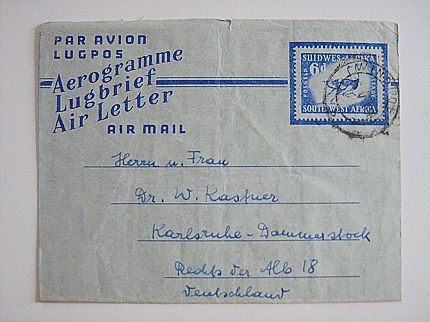 PAR AVION
LUGPOS
Aerogramme
Lugbrief
Air Letter
AIR MAIL
SUIDWES-AFRIKA
POSSEËL
6d
POSTAGE
SOUTH WEST AFRICA
Herrn u. Frau
Dr. W. Kastner
Karlsruhe-Dammerstock
Rechts der Alb 18
Deutschland